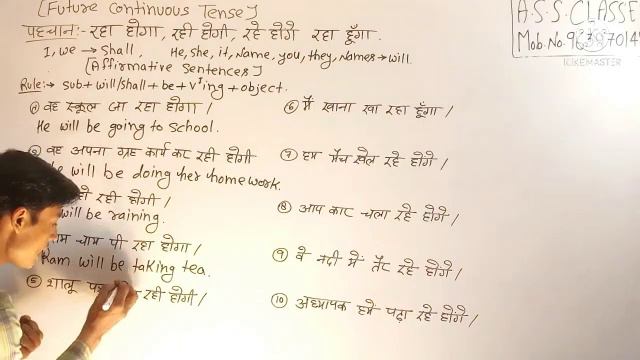 [Future Continuous Tense]
पहचान:- रहा होगा, रही होगी, रहे होगे रहा हूँगा.
I, we → shall, He, she, it, Name, you, they, Names → will.
[Affirmative Sentences]
Rule:→ sub + will/shall + be + v¹ing + object.
① वह स्कूल जा रहा होगा।
He will be going to school.
② वह अपना ग्रह कार्य कर रही होगी
will be doing her homework.
हो रही होगी।
will be raining.
चाय पी रहा होगा।
Ram will be taking tea.
⑤ शालू रही होगी।
⑥ मैं खाना खा रहा हूँगा।
⑦ हम मैच खेल रहे होगे।
⑧ आप कार चला रहे होगे।
⑨ वे नदी में तैर रहे होगे।
⑩ अध्यापक हमे पढ़ा रहे होंगे।
A.S.S. CLASSE
Mob. No.
KINEMASTER